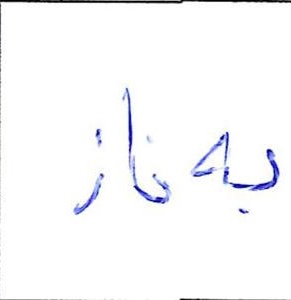 به ناز